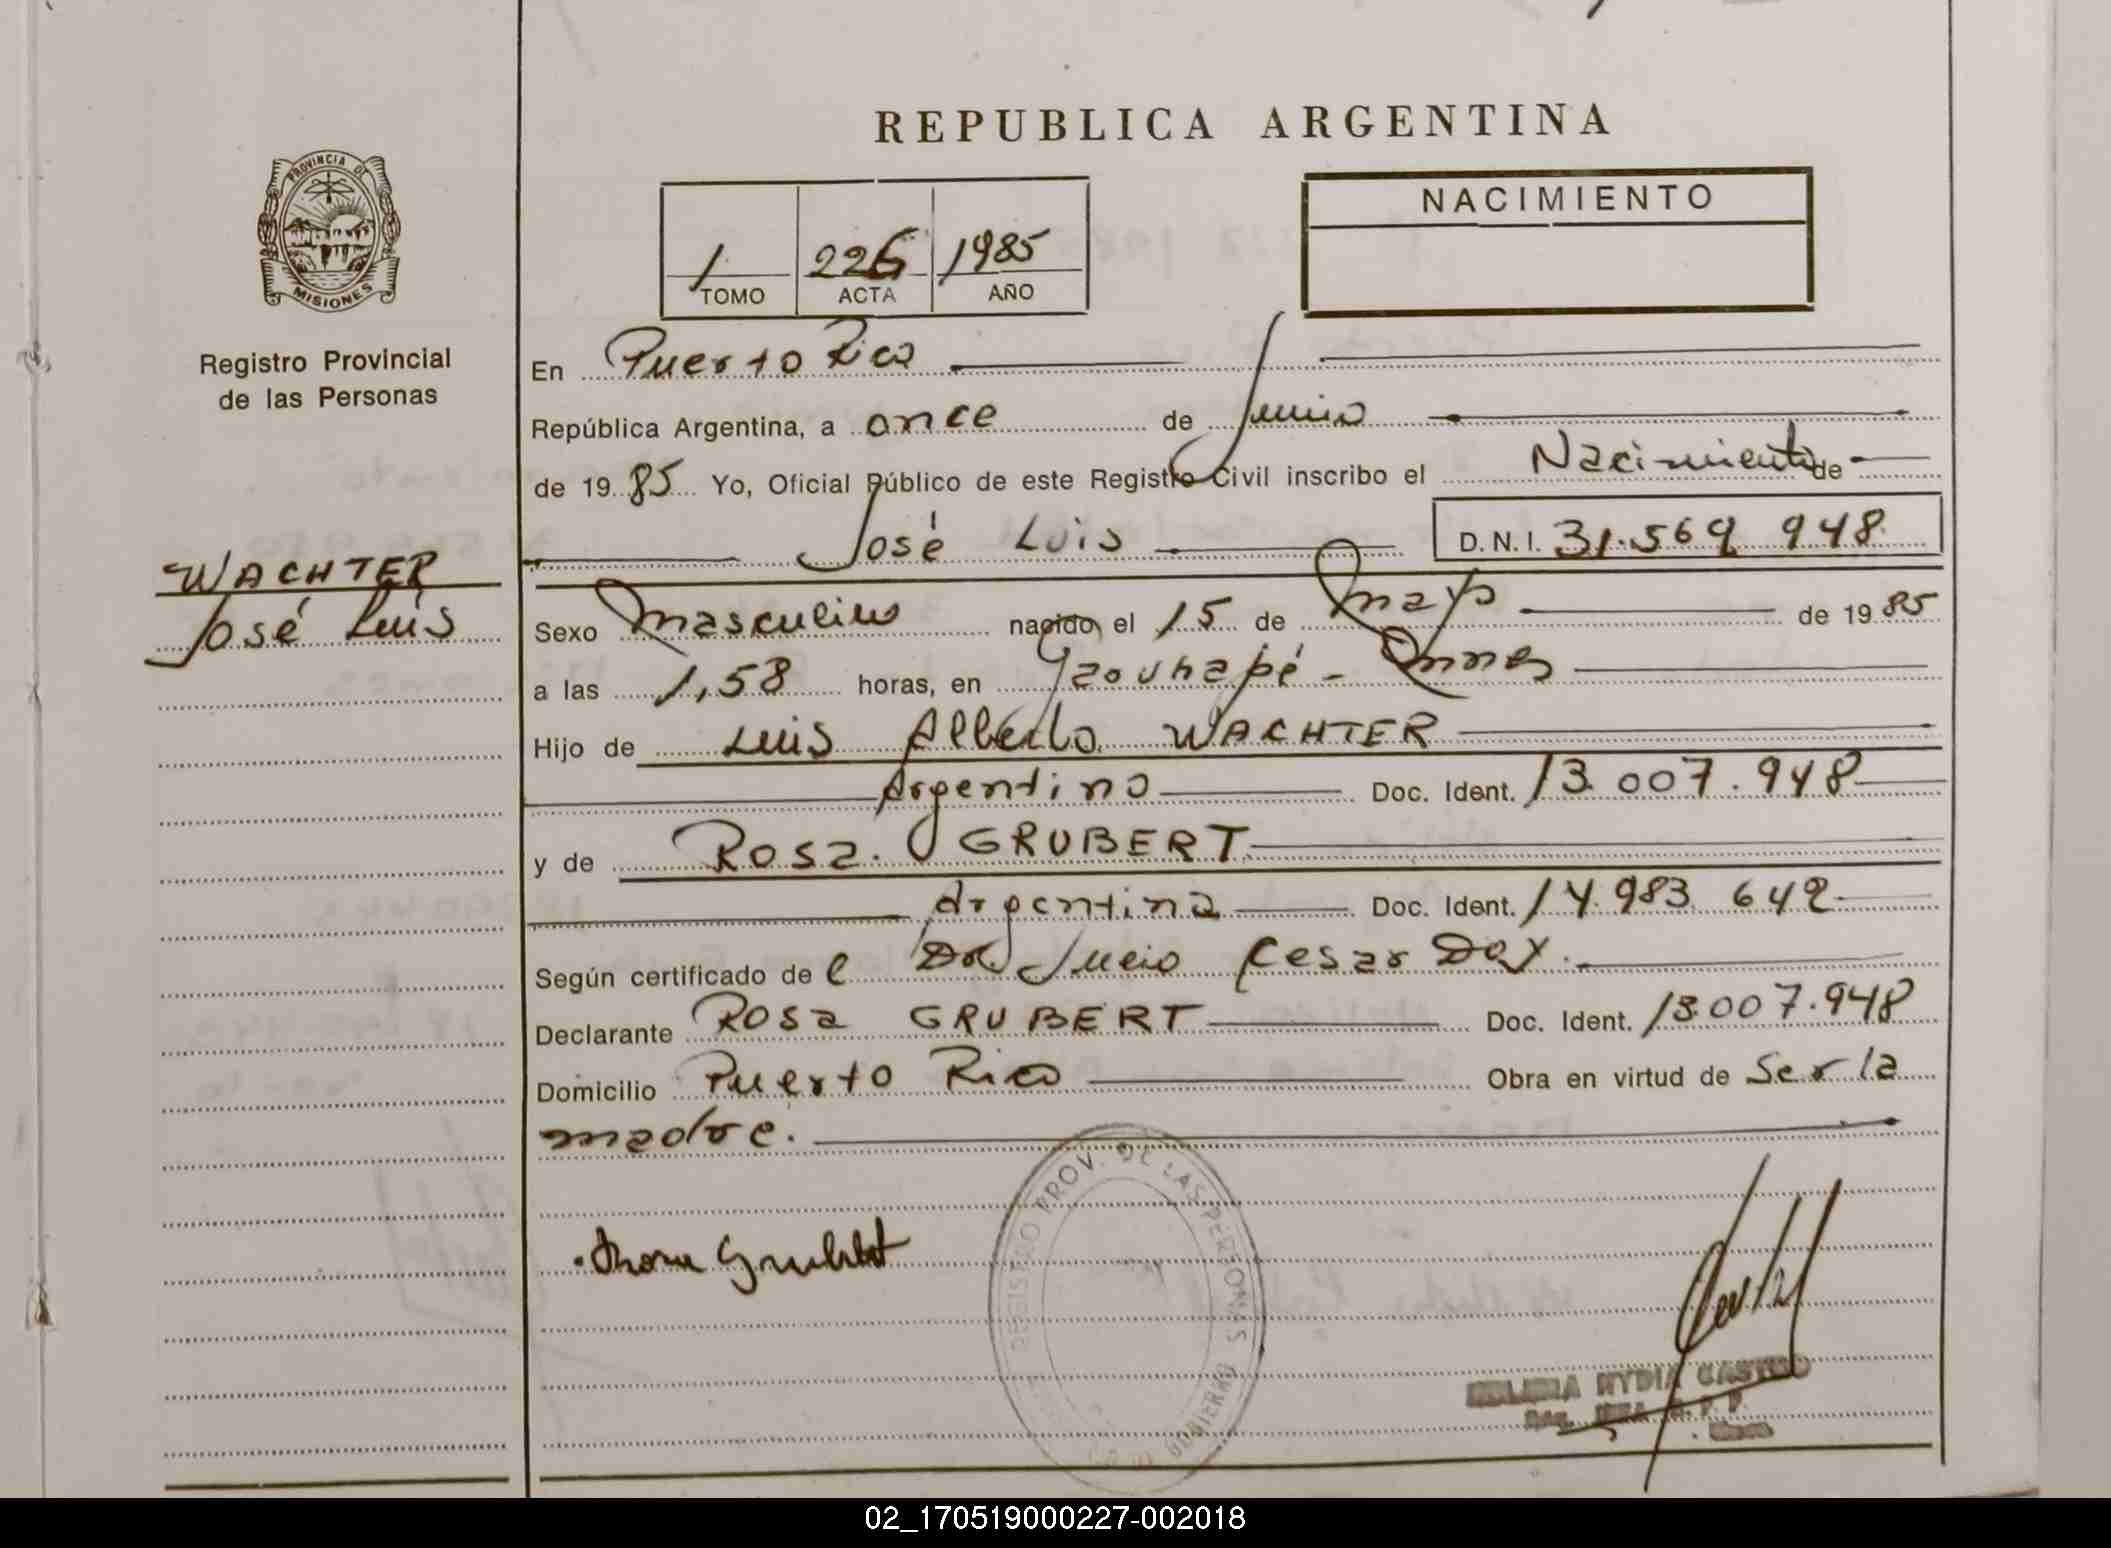 REPUBLICA ARGENTINA
PROVINCIA DE
MISIONES
Registro Provincial
de las Personas
1 226 1985
TOMO ACTA AÑO
NACIMIENTO
En Puerto Rico
República Argentina, a once de Junio
de 1985 Yo, Oficial Público de este Registro Civil inscribo el Nacimiento de
José Luis D.N.I. 31.569 948
WACHTER
José Luis
Sexo Masculino nacido el 15 de mayo de 1985
a las 1,58 horas, en Garuhapé -
Hijo de Luis Alberto WACHTER
Argentino Doc. Ident. 13.007.948
y de Rosa GRUBERT
Argentina Doc. Ident. 14.983 642
Según certificado del Dr. Julio Cesar Dax.
Declarante Rosa GRUBERT Doc. Ident. 13.007.948
Domicilio Puerto Rico Obra en virtud de Ser la
madre.
REGISTRO PROV. DE LAS PERSONAS
GOBIERNO
Grubert
NYDIA CASTRO
02_170519000227-002018